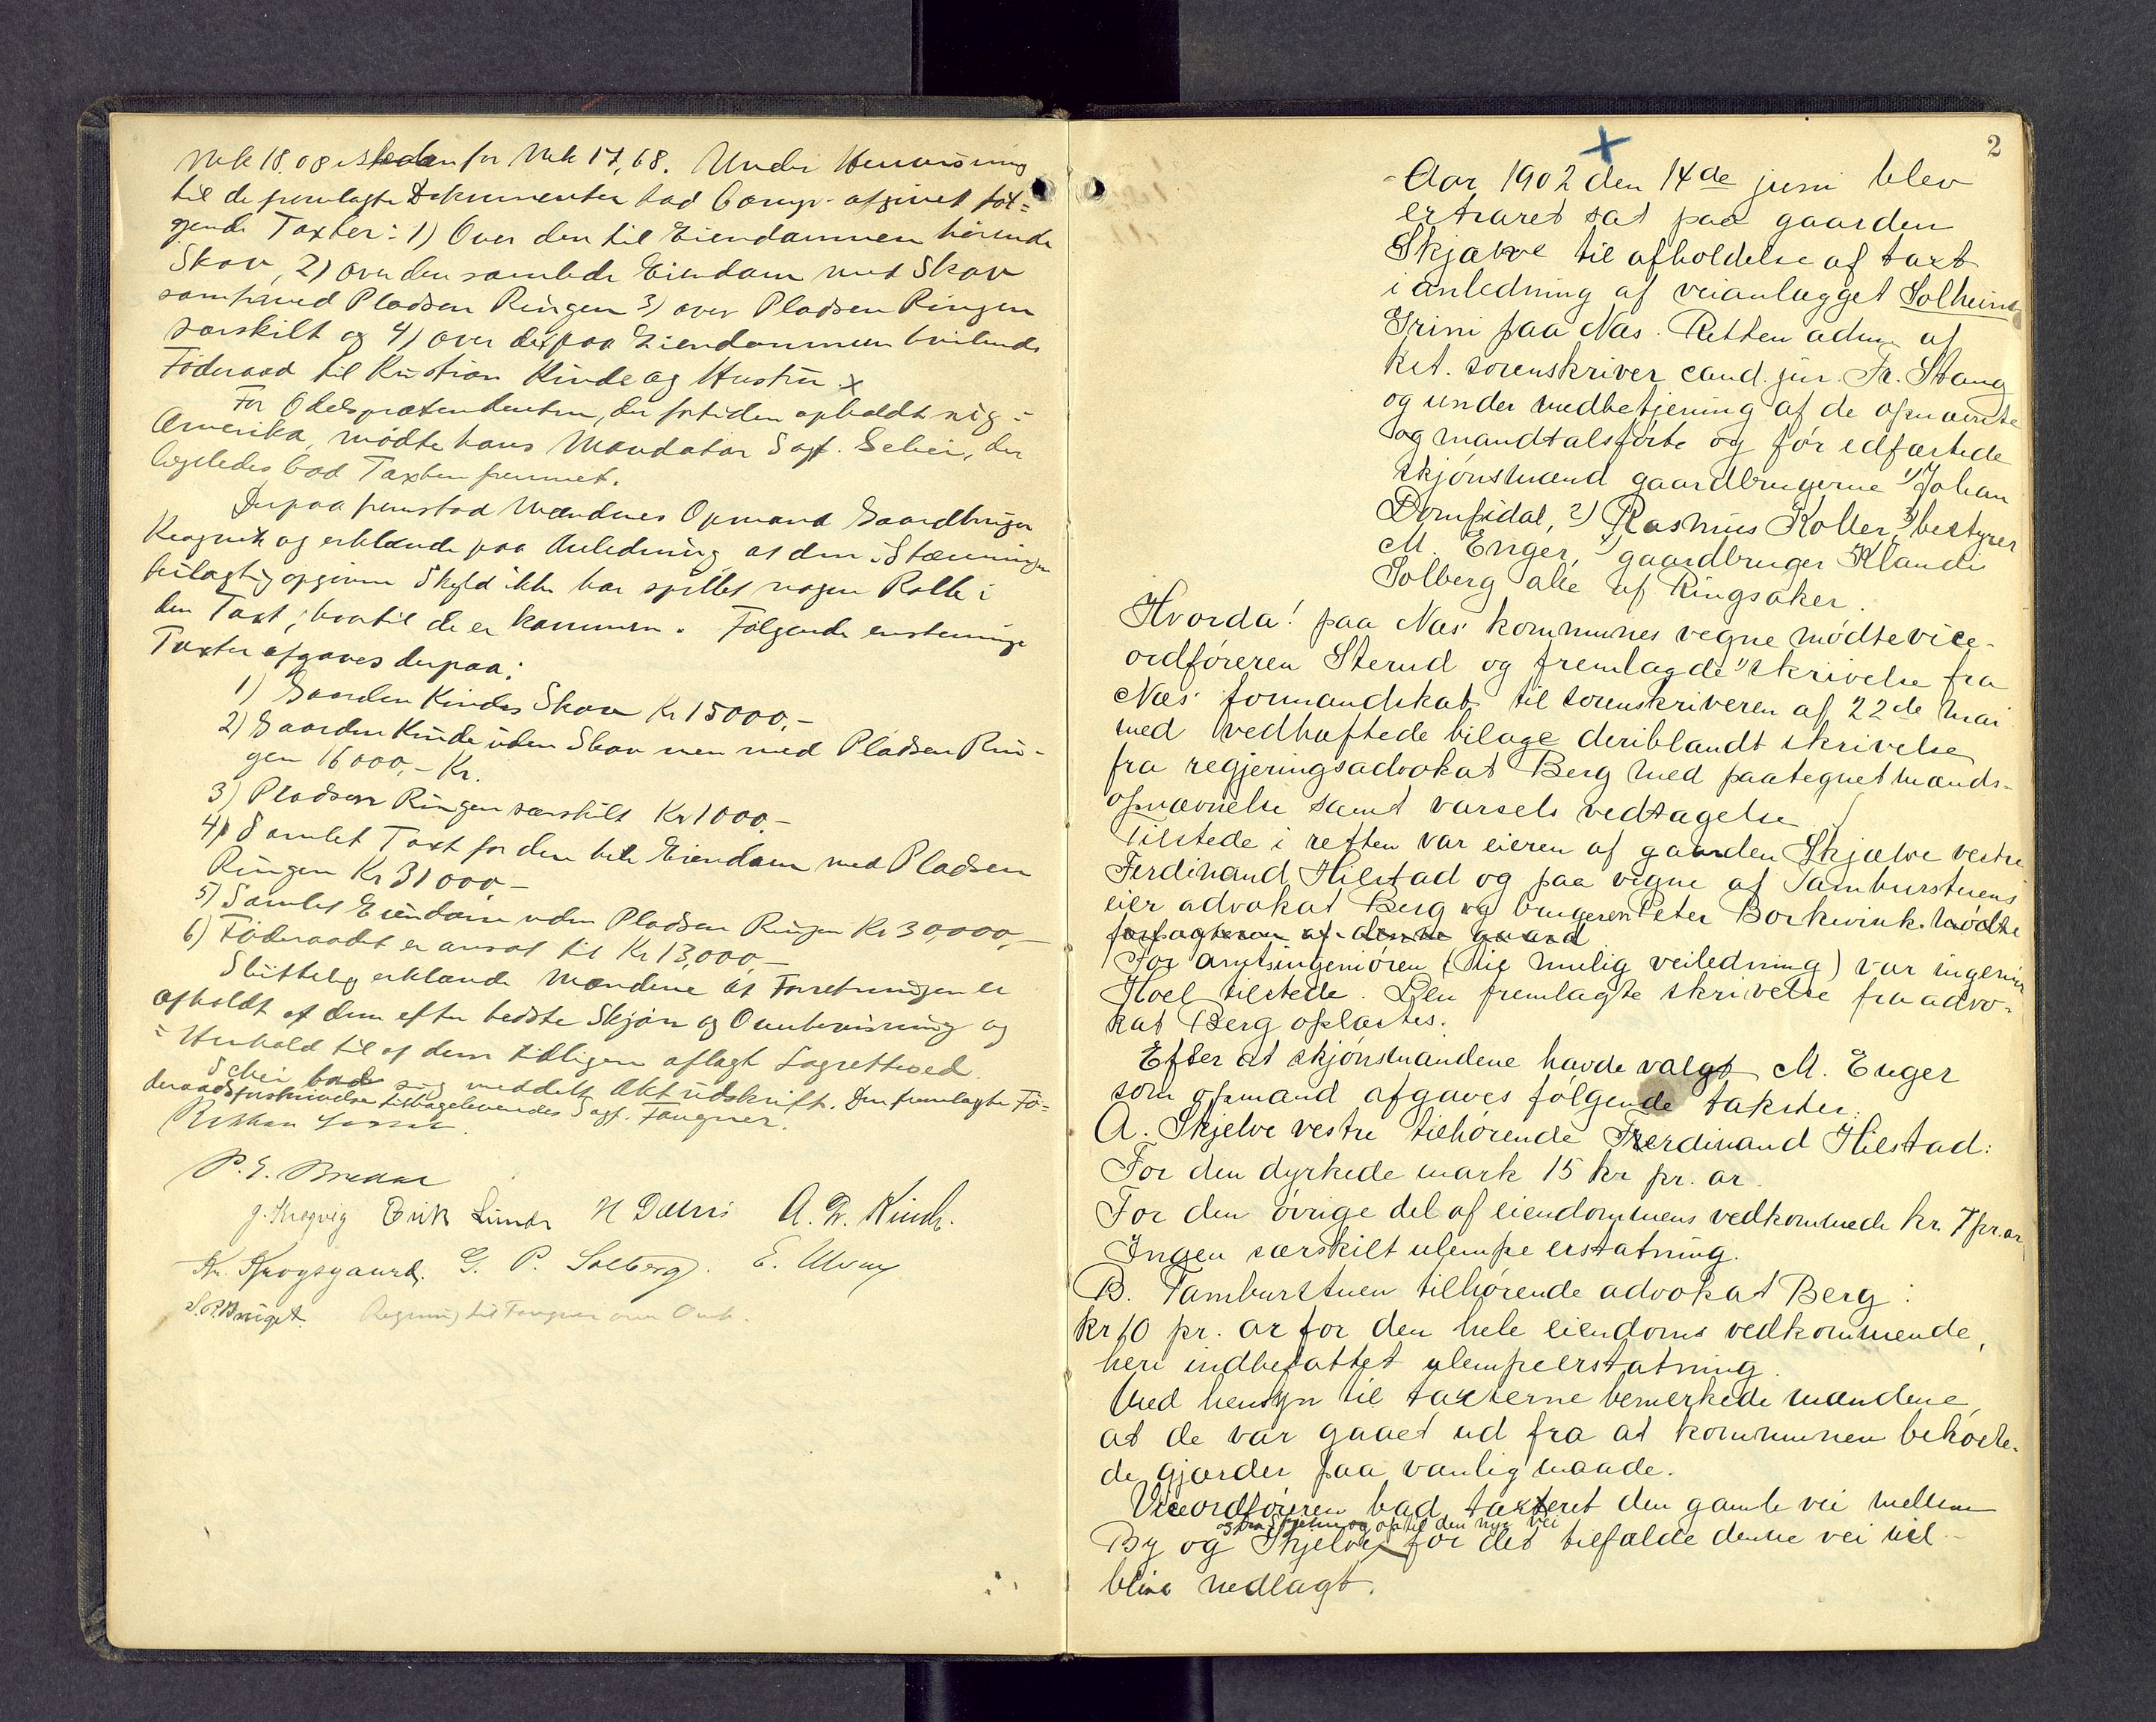 Mrk 18,08 istedenfor Mrk 17,68. Under Henvisning
til de fremlagte Dokumenter bad Comp. afgivet føl=
gende Taxter: 1) Over den til Eiendommen hørende
Skov, 2) over den samlede Eiendom med Skov
samt med Pladsen Ringen 3) over Pladsen Ringen
særskilt og 4) over det paa Eiendommen hvilende
Føderaad til Kristian Kinde og Hustru x
For Odelsprætendenten, der fortiden opholdt sig i
Amerika, mødte hans Mandatar Sagf. Schei, der
ligeledes bad Taxten fremmet.
Derpaa fremstod Mændenes Opmand Gaardbruger
Krogvik og erklærede paa Anledning at den i Stævningen
feilagtig opgivne Skyld ikke har spillet nogen Rolle i
den Taxt, hvortil de er kommen. Følgende enstemmige
Taxter afgaves derpaa:
1) Gaarden Kindes Skov Kr 15000,-
2) Gaarden Kinde uden Skov men med Pladsen Rin-
gen 16000,- Kr.
3) Pladsen Ringen særskilt Kr 1000.-
4) Samlet Taxt for den hele Eiendom med Pladsen
Ringen Kr 31000-
5) Samlet Eiendom uden Pladsen Ringen Kr 30,000,-
6) Føderaadet er ansat til Kr 13,000,-
Sluttelig erklærede Mændene at Forretningen er
afholdt af dem efter bedste Skjøn og Overbevisning og
i Henhold til af dem tidligere aflagt Lagretteed.
Schei bad sig meddelt Aktudskrift. Den fremlagte Fø=
deraadsforskrivelse tilbageleveredes Sagf. Fougner.
Retten hævet.
P. E. Bredar
J. Krogvig Erik Lunde H Dæhli A. Kinde.
Kr. Krogsgaard. G. P. Solberg. E. Ulven
S. P. Bruget. Regning til Fougner
2
Aar 1902 den 14de juni blev
extraret sat paa gaarden
Skjælve til afholdelse af taxt
i anledning af veianlægget Solheim
Grini paa Næs. Retten adm. af
kst. sorenskriver cand. jur. Fr. Stang
og under medbetjening af de opnævnte
og mandtalsførte og før edfæstede
skjønsmænd gaardbrugerne 1) Johan
Domfidal, 2) Rasmus Koller, 3) bestyrer
M. Enger, 4) gaardbruger Klaudi
Solberg alle af Ringsaker.
Hvorda! paa Næs kommunes vegne mødte vice-
ordføreren Sterud og fremlagde 1) skrivelse fra
Næs formandskab til sorenskriveren af 22de mai
med vedhæftede bilage deriblandt skrivelse
fra regjeringsadvokat Berg med paategnet mands-
opnævnelse samt varsels vedtagelse
Tilstede i retten var eieren af gaarden Skjælve vestre
Ferdinand Hilstad og paa vegne af Tamburstuens
eier advokat Berg og brugeren Peter Borkvink. mødte
forpagteren af denne gaard
For amtsingeniøren (til mulig veiledning) var ingeniør
Hoel tilstede. Den fremlagte skrivelse fra advo-
kat Berg oplæstes.
Efter at skjønsmændene havde valgt M. Enger
som opmand afgaves følgende takster:
A. Skjelve vestre tilhørende Ferdinand Hilstad:
For den dyrkede mark 15 kr pr. ar.
For den øvrige del af eiendommens vedkommede kr. 7 pr. ar
Ingen særskilt ulempe erstatning.
B. Tamburstuen tilhørende advokat Berg:
kr 10 pr. ar for den hele eiendoms vedkommende,
heri indbefattet ulempeerstatning.
Med hensyn til taxterne bemerkede mændene,
at de var gaaet ud fra at kommunen bekoste-
de gjærder paa vanlig maade.
Viceordføreren bad taxteret den gamle vei mellem
og fra Skjelve og op til den nye vei
By og Skjelve for det tilfælde denne vei vil
blive nedlagt.